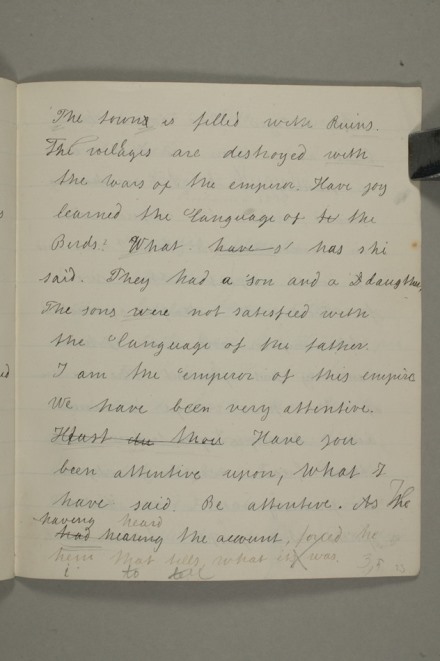 The towns is filled with Ruins.
The villages are destroyed with
the wars of the emperor. Have joy
learned the language of te the
Birds! What have s' has shi
said. They had a son and a D daughter,
The sons were not satisfied with
the language of the father.
I am the emperor of this empire
We have been very attentive.
Hast du thou Have you
been attentive upon, What I
have said. Be attentive. As The
having heard
had hearing the account, forced he
him that tells what it was.
to tell